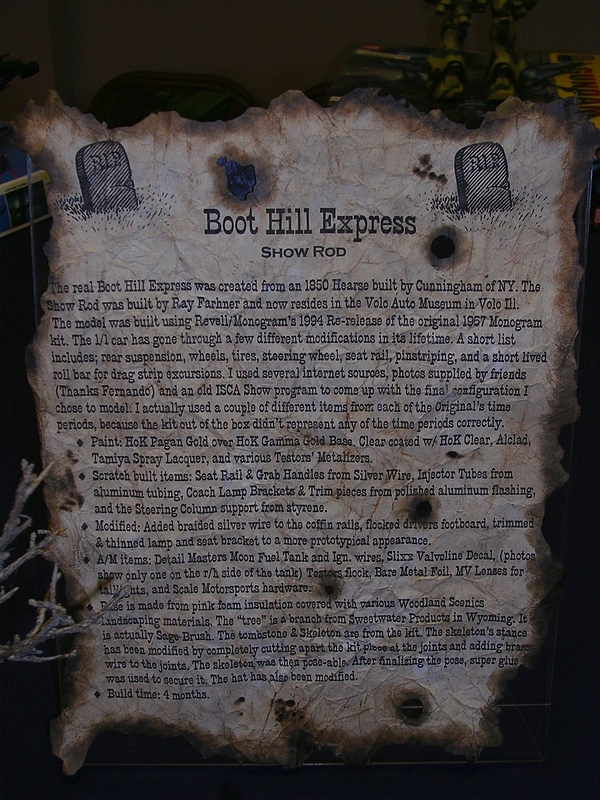 RIP
RIP
Boot Hill Express
Show Rod
The real Boot Hill Express was created from an 1850 Hearse built by Cunningham of NY. The
Show Rod was built by Ray Farhner and now resides in the Volo Auto Museum in Volo Ill.
The model was built using Revell/Monogram's 1994 Re-release of the original 1967 Monogram
kit. The 1/1 car has gone through a few different modifications in its lifetime. A short list
includes; rear suspension, wheels, tires, steering wheel, seat rail, pinstriping, and a short lived
roll bar for drag strip excursions. I used several internet sources, photos supplied by friends
(Thanks Fernando) and an old ISCA Show program to come up with the final configuration I
chose to model. I actually used a couple of different items from each of the Original's time
periods, because the kit out of the box didn't represent any of the time periods correctly.
♦ Paint: HoK Pagan Gold over HoK Gamma Gold Base. Clear coated w/ HoK Clear, Alclad,
Tamiya Spray Lacquer, and various Testors' Metalizers.
♦ Scratch built items: Seat Rail & Grab Handles from Silver Wire, Injector Tubes from
aluminum tubing, Coach Lamp Brackets & Trim pieces from polished aluminum flashing,
and the Steering Column support from styrene.
♦ Modified: Added braided silver wire to the coffin rails, flocked drivers footboard, trimmed
& thinned lamp and seat bracket to a more prototypical appearance.
♦ A/M items: Detail Masters Moon Fuel Tank and Ign. wires, Slixx Valvoline Decal, (photos
show only one on the r/h side of the tank) Testors flock, Bare Metal Foil, MV Lenses for
taillights, and Scale Motorsports hardware.
♦ Base is made from pink foam insulation covered with various Woodland Scenics
landscaping materials. The "tree" is a branch from Sweetwater Products in Wyoming. It
is actually Sage Brush. The tombstone & Skeleton are from the kit. The skeleton's stance
has been modified by completely cutting apart the kit piece at the joints and adding brass
wire to the joints. The skeleton was then pose-able. After finalizing the pose, super glue
was used to secure it. The hat has also been modified.
♦ Build time: 4 months.